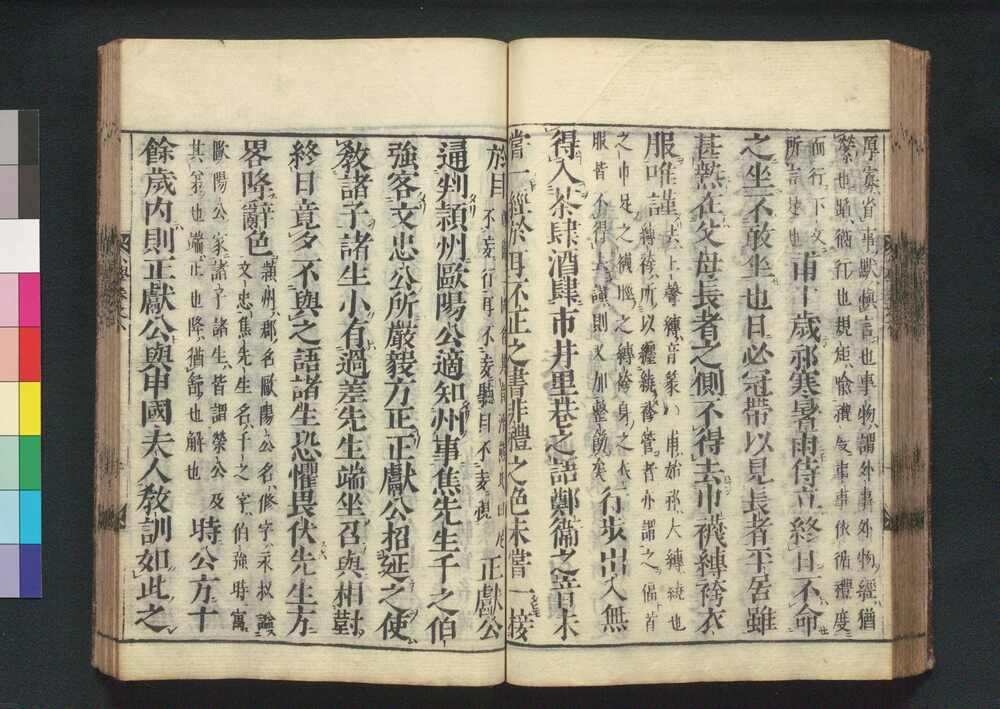 厚寡省事默愼言也事物謂外事外物經猶
縈也蹈猶行也規矩喻禮度事事依循禮度
而行下文
所言是也
甫十歲祁寒暑雨侍立終日不命
之坐不敢坐也日必冠帶以見長者平居雖
甚熱在父母長者之側不得去巾襪縛袴衣
服唯謹
去上聲縛音篆〇甫始祁大縛繞也
縛袴所以纏繞袴管者亦謂之偪首
之巾足之襪脛之縛袴身之衣
服皆不得去謹則又加整飭矣
行步出入無
得入茶肆酒肆市井里巷之語鄭衛之音未
嘗一經於耳不正之書非禮之色未嘗一接
於目
不妄行耳不妄聽目不妄視
正獻公
通判潁州歐陽公適知州事焦先生千之伯
強客文忠公所嚴毅方正正獻公招延之使
教諸子諸生小有過差先生端坐召與相對
終日竟夕不與之語諸生恐懼畏伏先生方
畧降辭色
潁州郡名歐陽公名修字永叔諡
文忠焦先生名千之字伯強時寓
歐陽公家諸子諸生皆謂滎公及
其弟也端正也降猶舒也解也
時公方十
餘歲內則正獻公與申國夫人教訓如此之